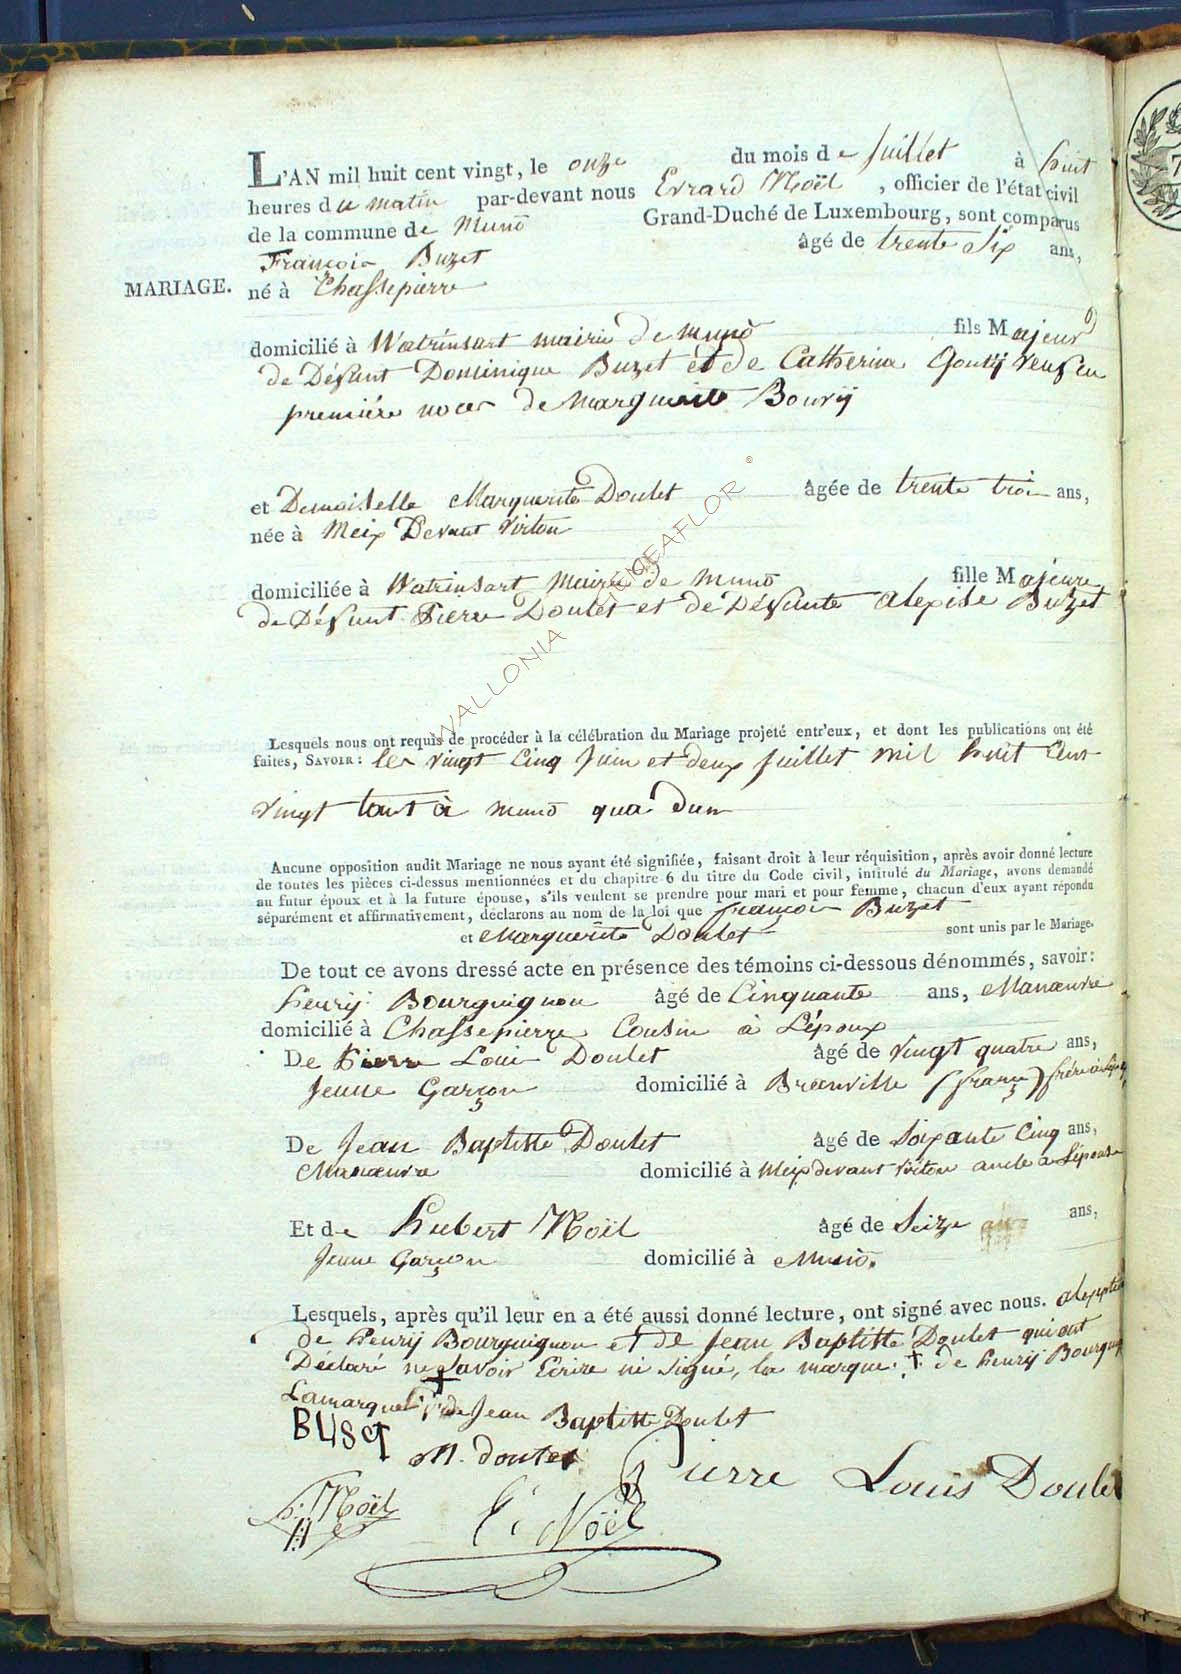 L'AN mil huit cent vingt, le onze du mois de Juillet à huit
heures du matin par-devant nous Evrard Noël, officier de l'état civil
de la commune de Muno Grand-Duché de Luxembourg, sont comparus
François Buzet âgé de trente Six ans,
MARIAGE. né à Chassepierre
domicilié à Watrinsart mairie de muno fils Majeur
de Défunt Dominique Buzet et de Catherine Goutij veuf en
première noces de Marguerite Bourij
et Demoiselle Marguerite Doulet âgée de trente trois ans,
née à Meix Devant Virton
domiciliée à Watrinsart Mairie de muno fille Majeure
de Défunt Pierre Doulet et de Défunte Alexise Buzet
WALLONIA GUMEAFLOR ©
Lesquels nous ont requis de procéder à la célébration du Mariage projeté entr'eux, et dont les publications ont été
faites, SAVOIR: les vingt Cinq Juin et deux Juillet mil huit Cent
vingt tant à muno
Aucune opposition audit Mariage ne nous ayant été signifiée, faisant droit à leur réquisition, après avoir donné lecture
de toutes les pièces ci-dessus mentionnées et du chapitre 6 du titre du Code civil, intitulé du Mariage, avons demandé
au futur époux et à la future épouse, s'ils veulent se prendre pour mari et pour femme, chacun d'eux ayant répondu
séparément et affirmativement, déclarons au nom de la loi que françois Buzet
et Marguerite Doulet sont unis par le Mariage.
De tout ce avons dressé acte en présence des témoins ci-dessous dénommés, savoir:
henrij Bourguignon âgé de Cinquante ans, Manœuvre
domicilié à Chassepierre Cousin à L'époux
De Pierre Louis Doulet âgé de vingt quatre ans,
Jeune Garçon domicilié à Breanville (france) frère à
De Jean Baptiste Doulet âgé de Soixante Cinq ans,
Manœuvre domicilié à Meix devant virton oncle à L'épouse
Et de hubert Noël âgé de Seize ans ans,
Jeune Garçon domicilié à Muno.
Lesquels, après qu'il leur en a été aussi donné lecture, ont signé avec nous.
de henrij Bourguignon et de Jean Baptiste Doulet qui ont
Déclaré ne Savoir Ecrire ni Signé, la marque † de henrij Bourguig
La marque † de Jean Baptiste Doulet
M. Doulet
Pierre Louis Doulet
h. Noël
E. Noël